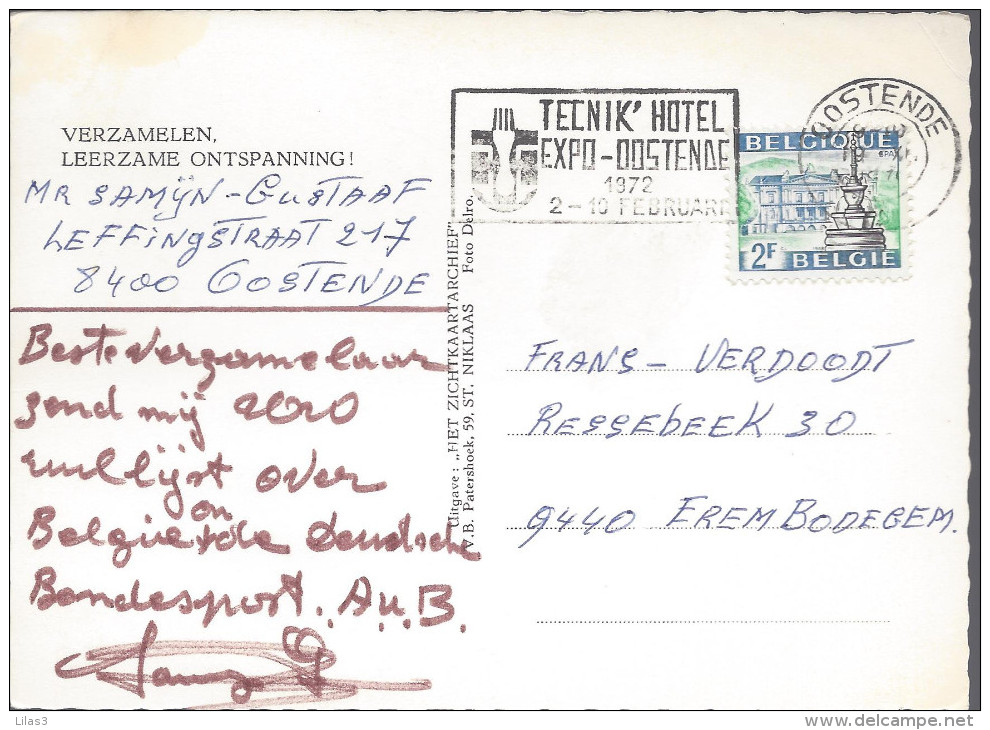 VERZAMELEN,
LEERZAME ONTSPANNING!
MR SAMŸN-GUSTAAF
LEFFINGSTRAAT 217
8400 OOSTENDE
Beste verzamelaar
zend mij
ruillijst over
België en de deutsche
Bondespost. A.u.B.
Uitgave: „HET ZICHTKAARTARCHIEF" Foto Delro.
V.B. Patershoek, 59, ST. NIKLAAS
TECNIK' HOTEL
EXPO-OOSTENDE
1972
2-10 FEBRUARI
OOSTENDE
BELGIQUE
SPA
2F BELGIE
FRANS - VERDOODT
RESSEBEEK 30
9440 EREMBODEGEM.
Lilas3
delcampe.net